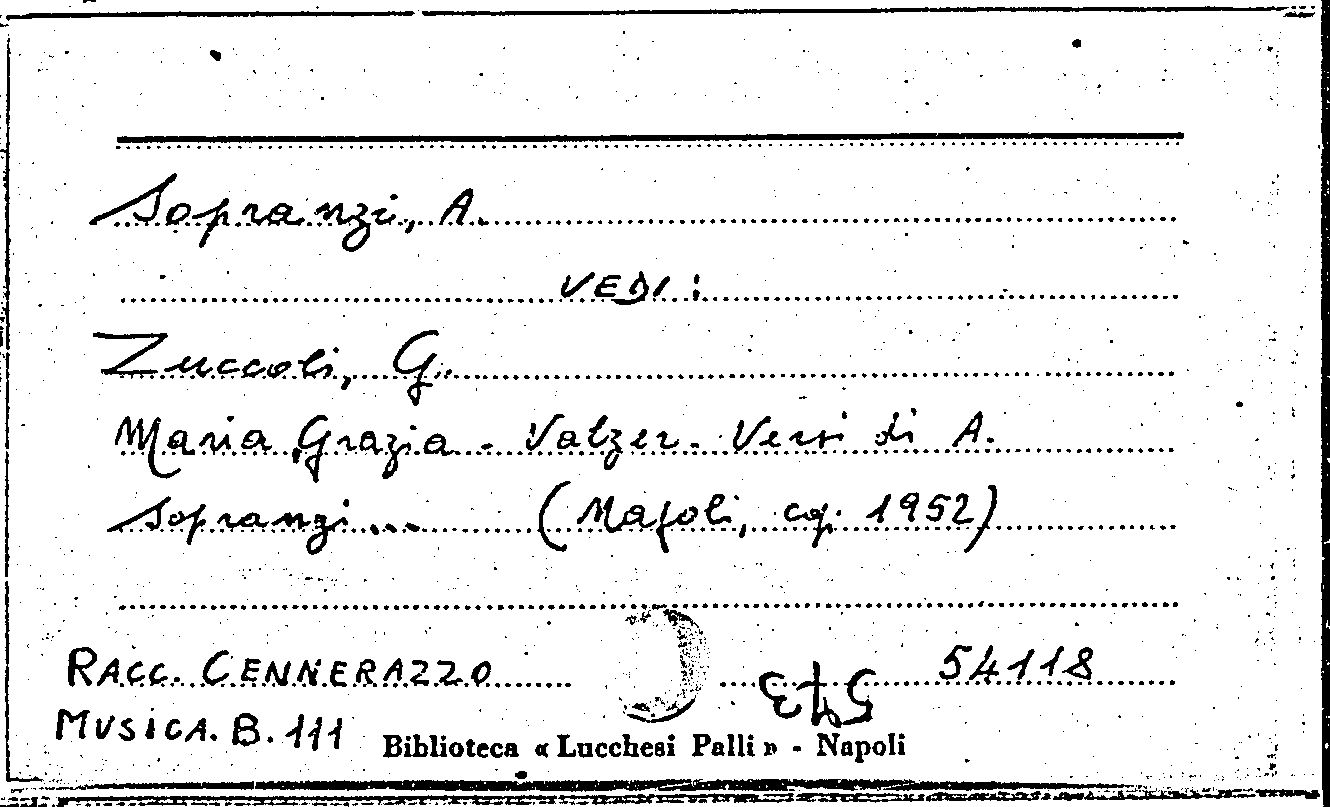 Sopranzi, A.
VEDI:
Zuccoli, G.
Maria Grazia - Valzer - Versi di A.
Sopranzi... (Napoli, cop. 1952)
RACC. CENNERAZZO 54118
MUSICA. B. 111
Biblioteca « Lucchesi Palli » - Napoli